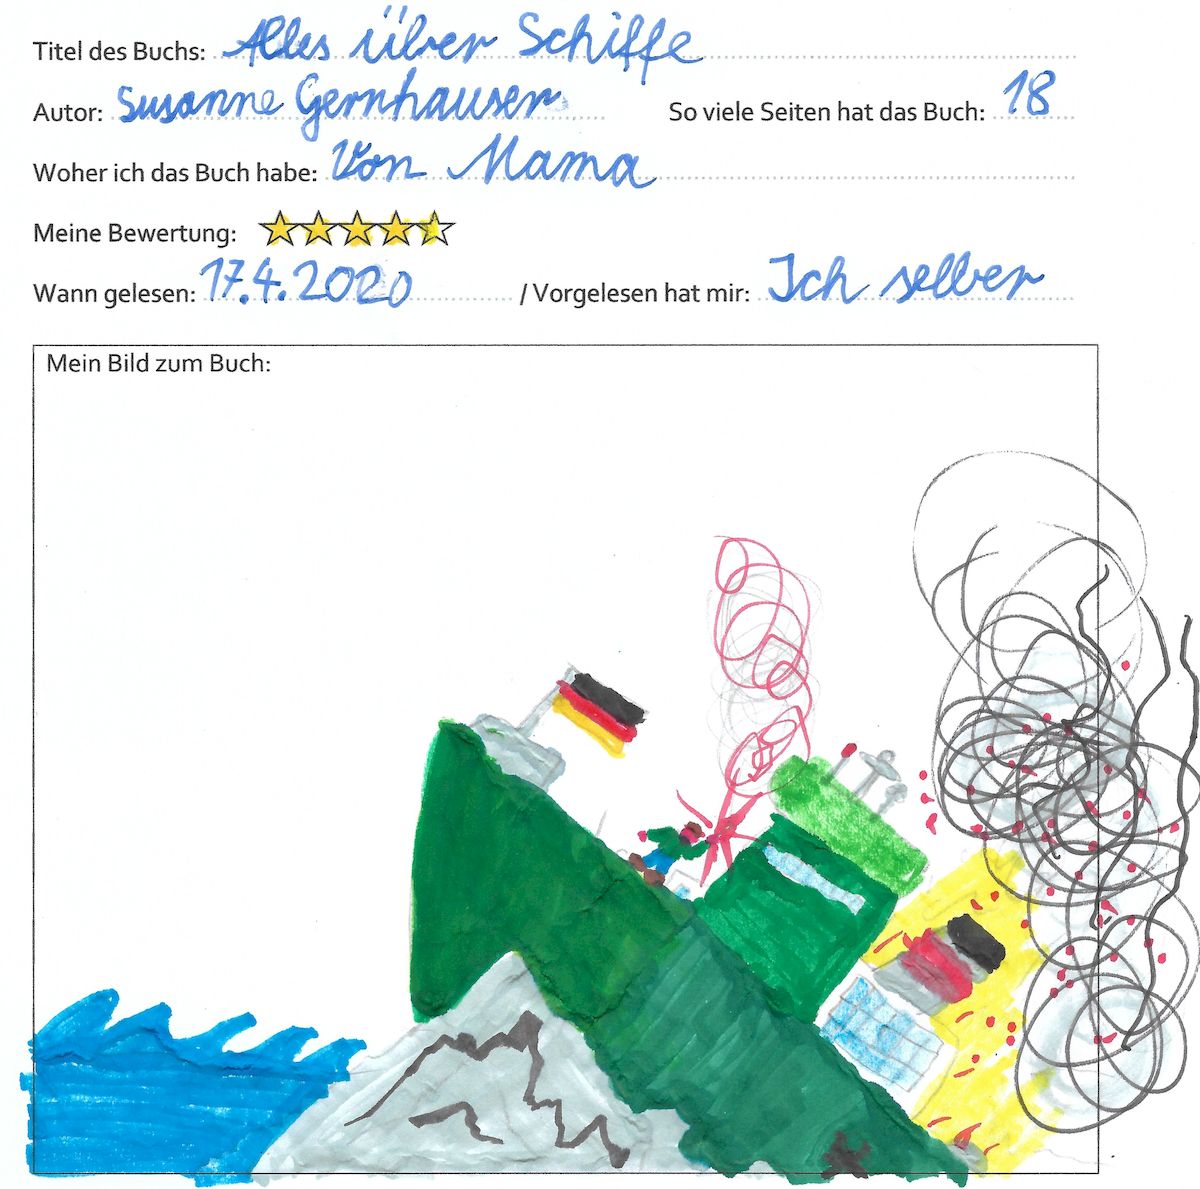 Titel des Buchs: Alles über Schiffe
Autor: Susanne Gernhauser So viele Seiten hat das Buch: 18
Woher ich das Buch habe: Von Mama
Meine Bewertung:
Wann gelesen: 17.4.2020 / Vorgelesen hat mir: Ich selber
Mein Bild zum Buch: